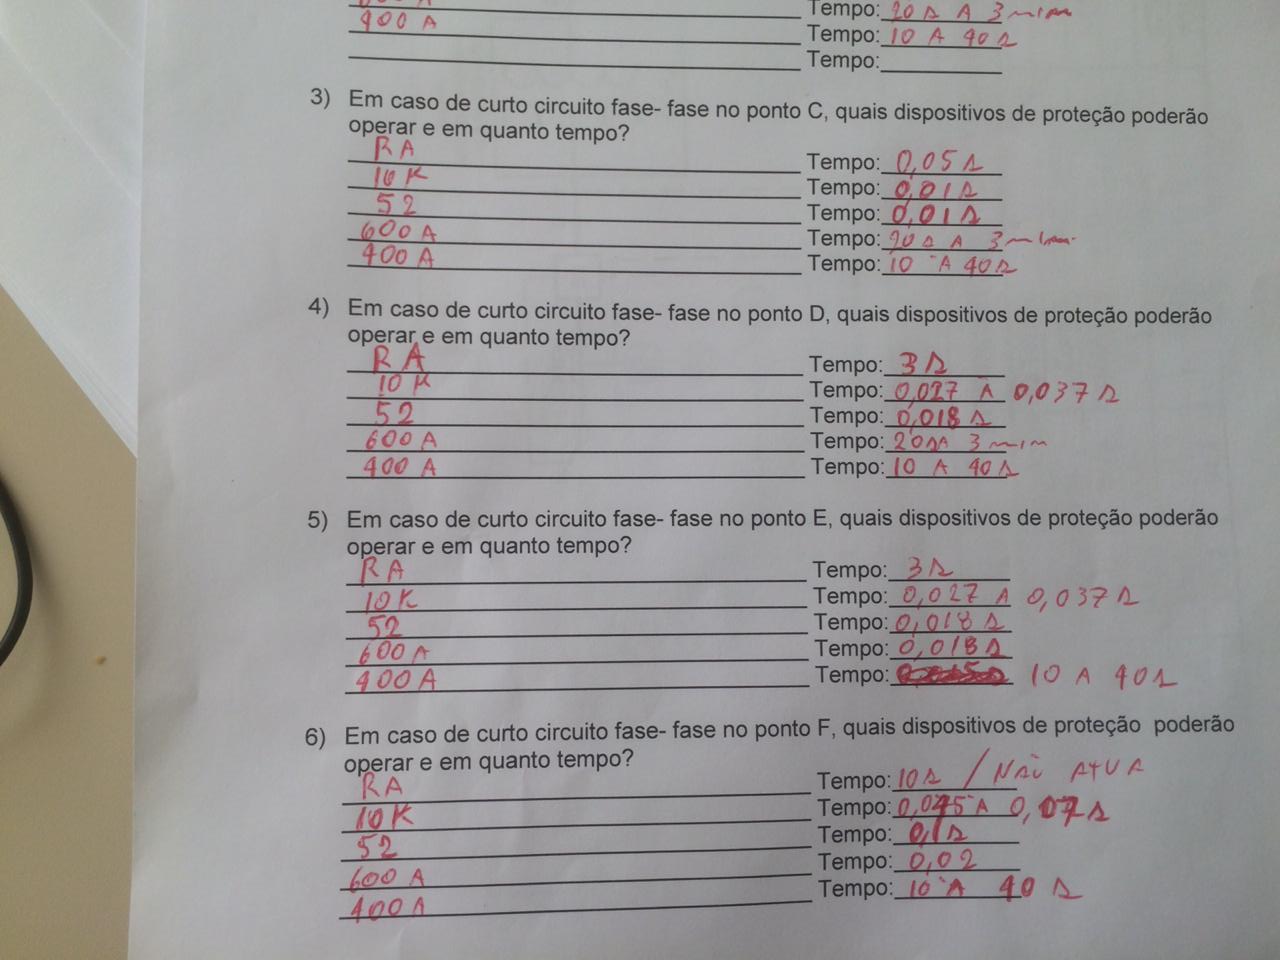 Tempo: 20 s A 3 mim
400 A Tempo: 10 A 40 s
Tempo:
3) Em caso de curto circuito fase- fase no ponto C, quais dispositivos de proteção poderão
operar e em quanto tempo?
RA Tempo: 0,05 s
10 K Tempo: 0,01 s
52 Tempo: 0,01 s
600 A Tempo: 20 s A 3 mim
400 A Tempo: 10 A 40 s
4) Em caso de curto circuito fase- fase no ponto D, quais dispositivos de proteção poderão
operar e em quanto tempo?
RA Tempo: 3 s
10 K Tempo: 0,027 A 0,037 s
52 Tempo: 0,018 s
600 A Tempo: 20 s A 3 mim
400 A Tempo: 10 A 40 s
5) Em caso de curto circuito fase- fase no ponto E, quais dispositivos de proteção poderão
operar e em quanto tempo?
RA Tempo: 3 s
10 K Tempo: 0,027 A 0,037 s
52 Tempo: 0,018 s
600 A Tempo: 0,018 s
400 A Tempo: 10 A 40 s
6) Em caso de curto circuito fase- fase no ponto F, quais dispositivos de proteção poderão
operar e em quanto tempo?
RA Tempo: 10 s / NÃO ATUA
10 K Tempo: 0,045 A 0,07 s
52 Tempo: 0,1 s
600 A Tempo: 0,02
400 A Tempo: 10 A 40 s